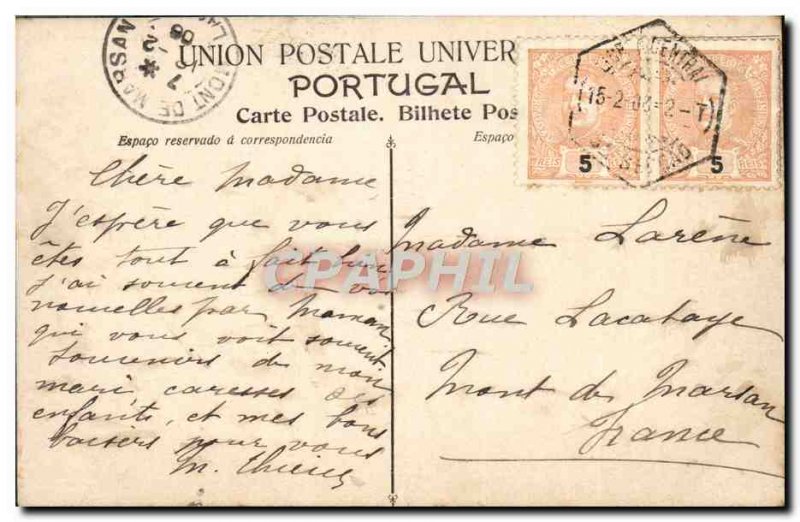 UNION POSTALE UNIVER
PORTUGAL
Carte Postale. Bilhete Pos
Espaço reservado á correspondencia
Espaço
MONT DE MARSAN
5
REIS
5
REIS
CENTRAL
15-2-
Chère Madame
J'espère que vous
êtes tout à fait bien
J'ai souvent de vos
nouvelles par Maman
qui vous voit souvent.
Souvenirs de mon
mari, caresses des
enfants, et mes bons
baisers pour vous
M.
Madame Larène
Rue Lacataye
Mont de Marsan
France
CPAPHIL